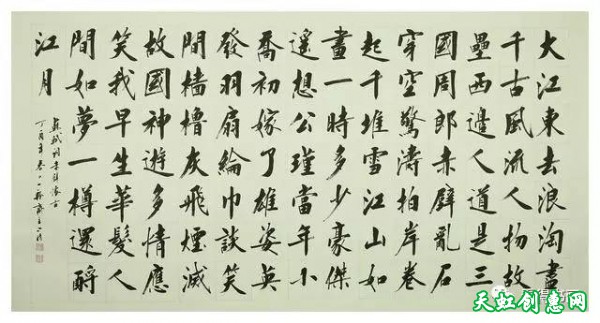 大江東去浪淘盡
千古風流人物故
壘西邊人道是三
國周郎赤壁亂石
穿空驚濤拍岸卷
起千堆雪江山如
畫一時多少豪傑
遥想公瑾當年小
喬初嫁了雄姿英
發羽扇綸巾談笑
間檣櫓灰飛煙滅
故國神遊多情應
笑我早生華髮人
間如夢一樽還酹
江月
蘇軾词赤壁懷古
丁酉年春
天虹创惠网